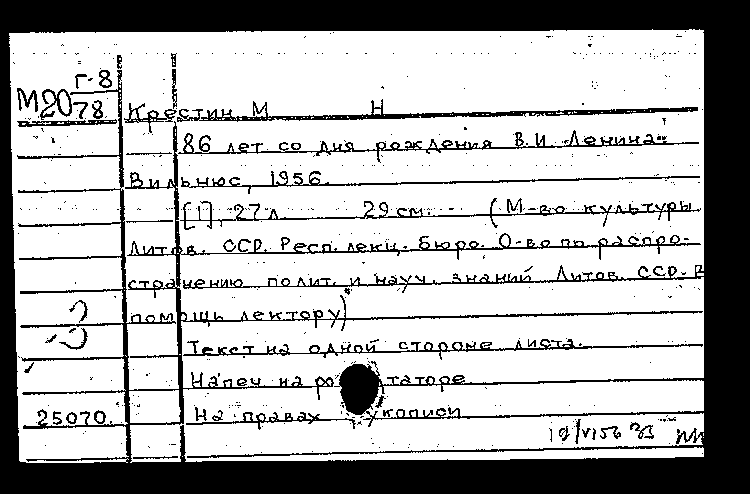 Г-8
М20 78
Крестин, М Н
86 лет со дня рождения В.И. Ленина.
Вильнюс, 1956.
[1], 27 л. 29 см. (М-во культуры
Литов. ССР. Респ. лекц. бюро. О-во по распро-
странению полит. и науч. знаний Литов. ССР. В
помощь лектору)
Текст на одной стороне листа.
Напеч на ро таторе.
25070. На правах укописи